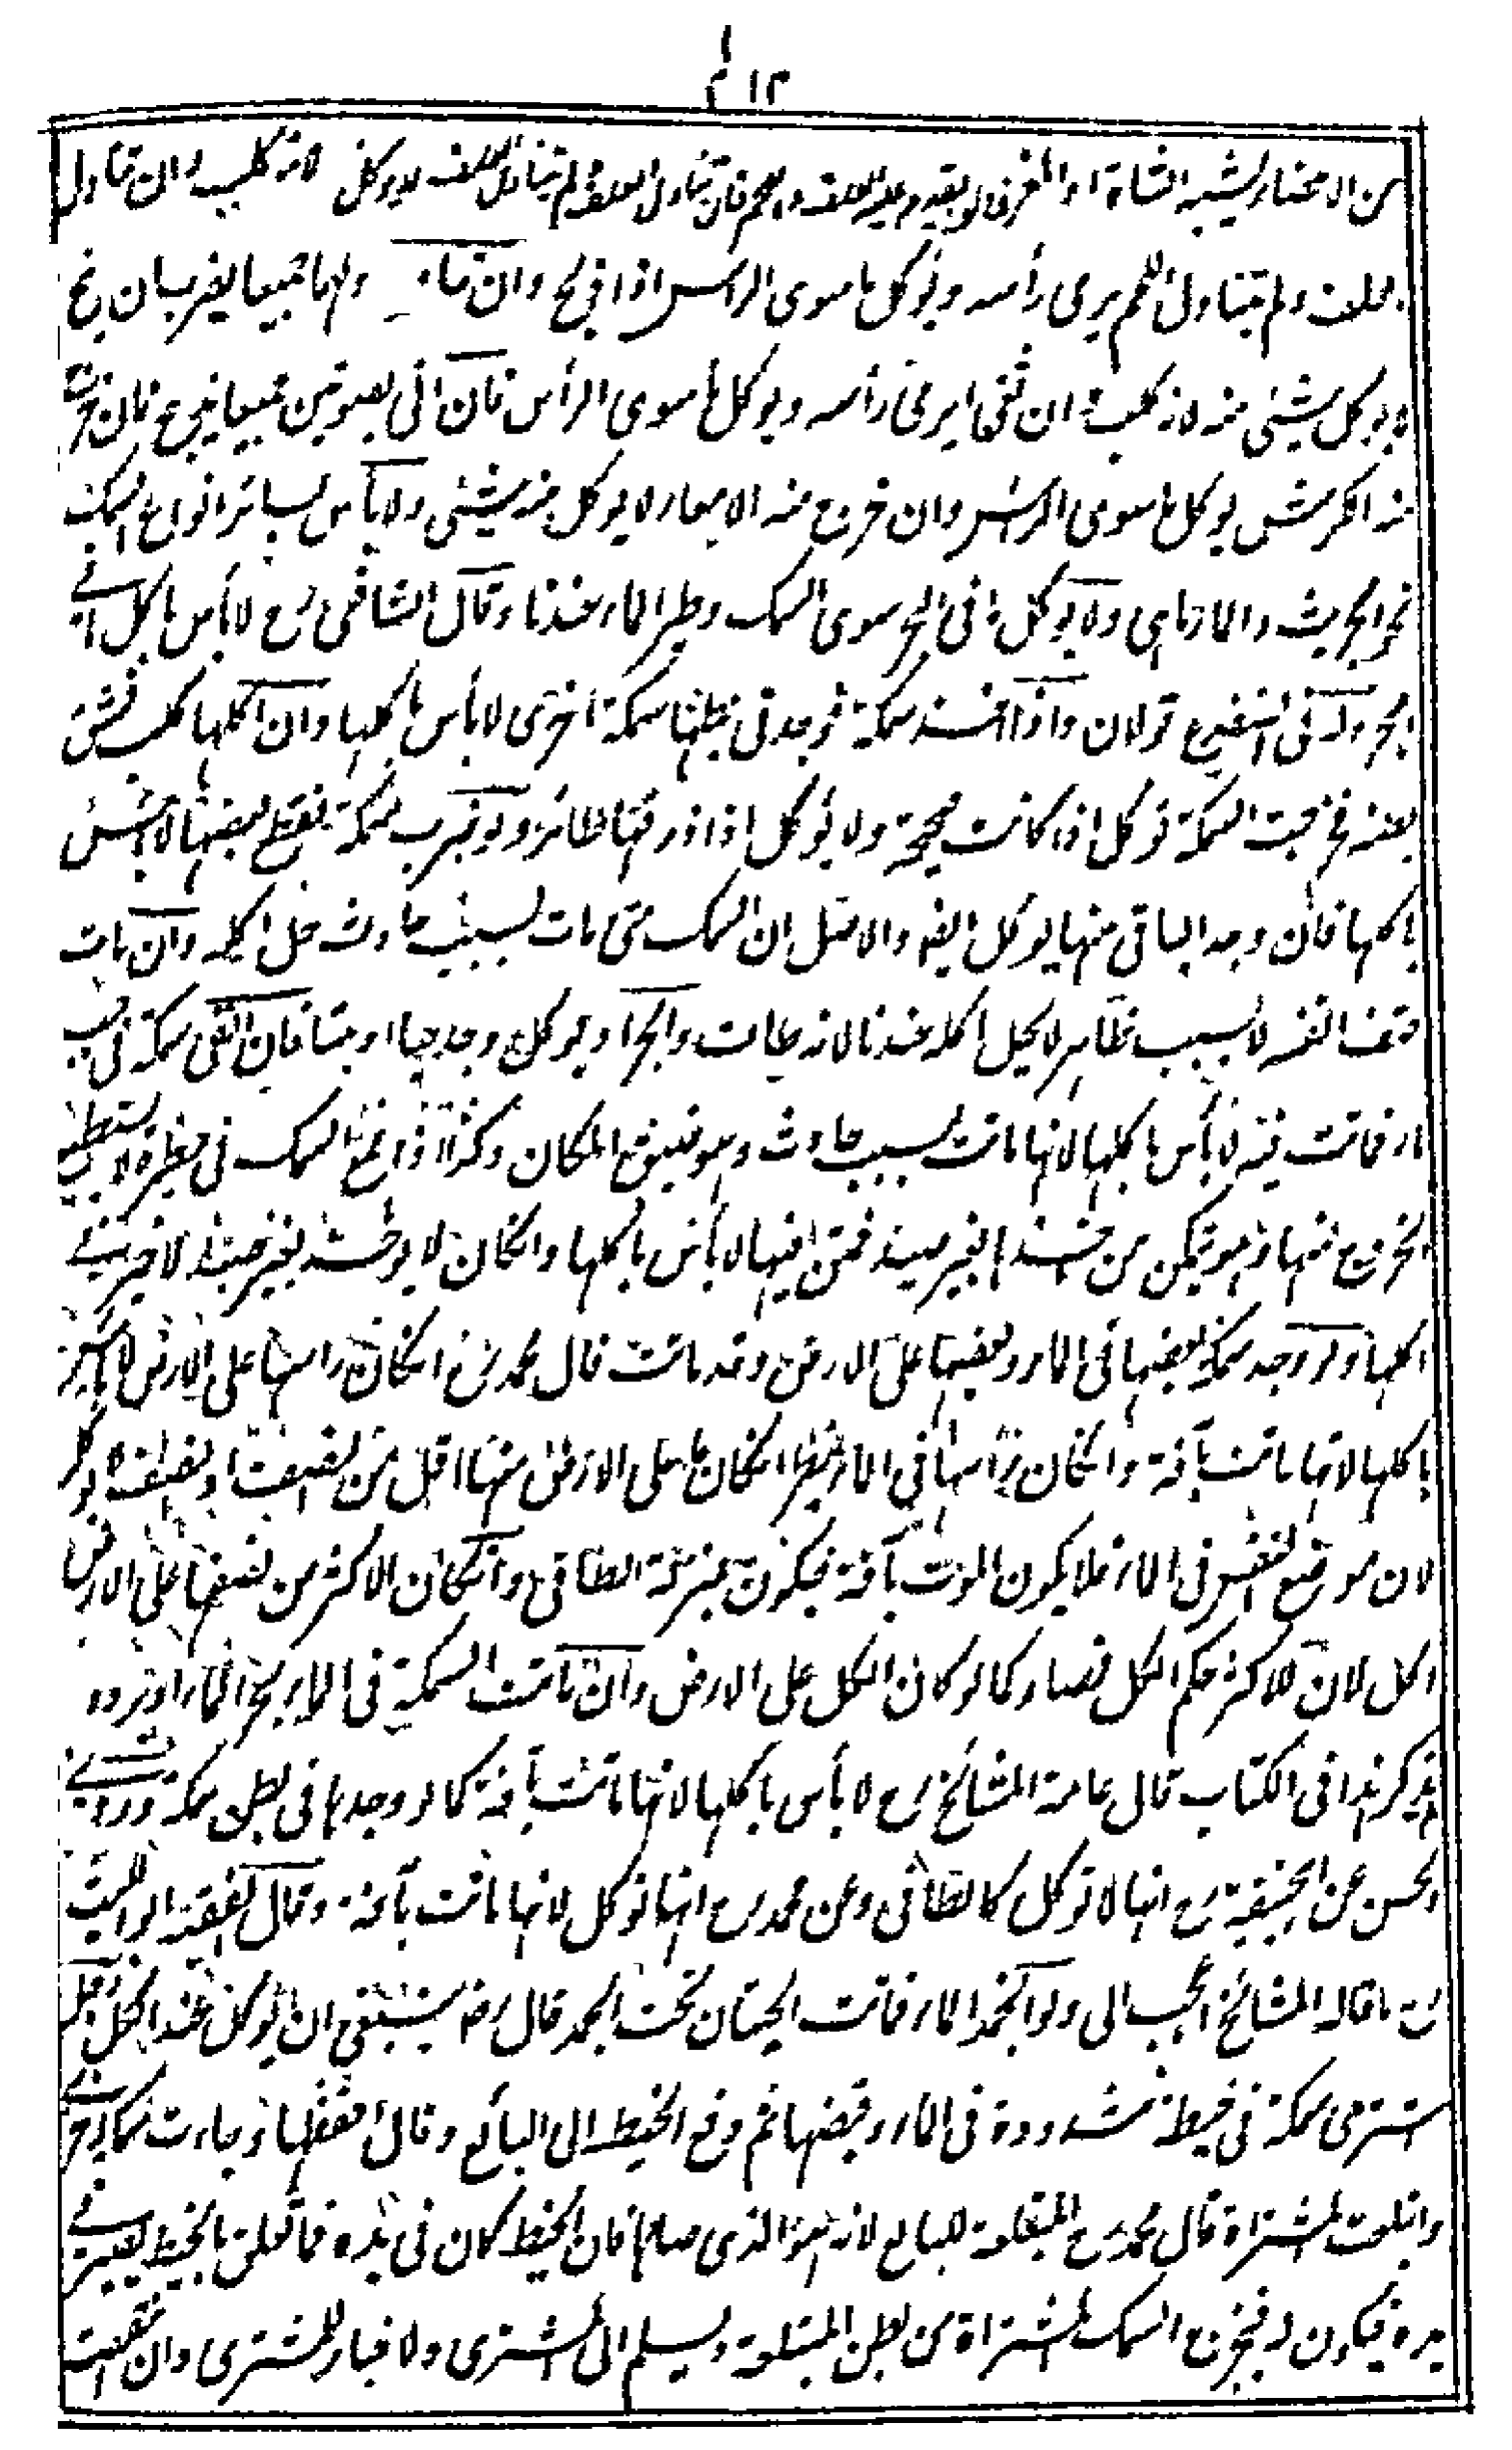 ٢١٢
من الاعضاء يشبه الشاة او المعز قالوا يقدم عليه العلف واللحم فان تناول اللحم ولم يتناول العلف لا يوكل لانه كلب وان تناول
العلف ولم يتناول اللحم يرمى رأسه ويوكل ما سوى الرأس اذا ذبح وان تناولهما جميعا يضرب ان نبح
لا يوكل شيئى منه لانه كلب وان ثغى يرمى رأسه ويوكل ما سوى الرأس فان اتى بصوتين جميعا يذبح فان خرج
منه الكرش يوكل ما سوى الرأس وان خرج منه الامعاء لا يوكل منه شيئى ولا بأس بسائر انواع السمك
نحو الجريث والمارماهي ولا يوكل ما في البحر سوى السمك وطير الماء عندنا وقال الشافعي رح لا بأس باكل ما في
البحر وله في الضفدع قولان واذا اخذ سمكة فوجد في بطنها سمكة اخرى لا بأس باكلها وان اكلها كلب فشق
بطنه فخرجت السمكة توكل اذا كانت صحيحة ولا يؤكل اذا ذرقها طائر ولو ضرب سمكة فقطع بعضها لا بأس
باكلها فان وجد الباقي منها يوكل ايضا والاصل ان السمك متى مات بسبب حادث حل اكله وان مات
حتف انفه لا بسبب ظاهر لا يحل اكله عندنا لانه طاف والجراد يوكل وجد حيا او ميتا فان القى سمكة في حب
ماء فماتت فيه لا بأس باكلها لانها ماتت بسبب حادث وهو ضيق المكان وكذا اذا جمع السمك في حظيرة لا يستطيع
الخروج منها وهو يتمكن من اخذها بغير صيد فمتن فيها لا بأس باكلها وان كان لا يوخذ بغير صيد لا خير في
اكلها ولو وجد سمكة بعضها في الماء وبعضها على الارض وقد ماتت قال محمد رح ان كان رأسها على الارض لا بأس
باكلها لانها ماتت بآفة وان كان رأسها في الماء ينظر ان كان ما على الارض منها اقل من النصف او نصفه لا يوكل
لان موضع النفس في الماء فلا يكون الموت بآفة فيكون بمنزلة الطافي وان كان الاكثر من نصفها على الارض
اكل لان للاكثر حكم الكل فصار كما لو كان الكل على الارض وان ماتت السمكة في الماء بحر الماء او برده
لم يذكر هذا في الكتاب قال عامة المشائخ رح لا بأس باكلها لانها ماتت بآفة كما لو وجدها في بطن سمكة وروى
الحسن عن ابيحنيفة رح انها لا توكل كالطافي وعن محمد رح انها توكل لانها ماتت بآفة وقال الفقيه ابو الليث
رح ما قاله المشائخ اعجب الى ولو انجمد الماء فماتت الحيتان تحت الجمد قال رض ينبغي ان يوكل عند الكل رجل
اشترى سمكة في خيط مشدودة في الماء وقبضها ثم دفع الخيط الى البائع وقال احفظها فجاءت سمكة اخرى
وابتلعت المشتراة قال محمد رح المبتلعة للبائع لانه هو الذي صادها فان الخيط كان في يده فما تعلق بالخيط يصير في
يده فيكون له فيخرج السمك المشتراة من بطن المبتلعة ويسلم الى المشترى ولا خيار للمشترى وان نقصت